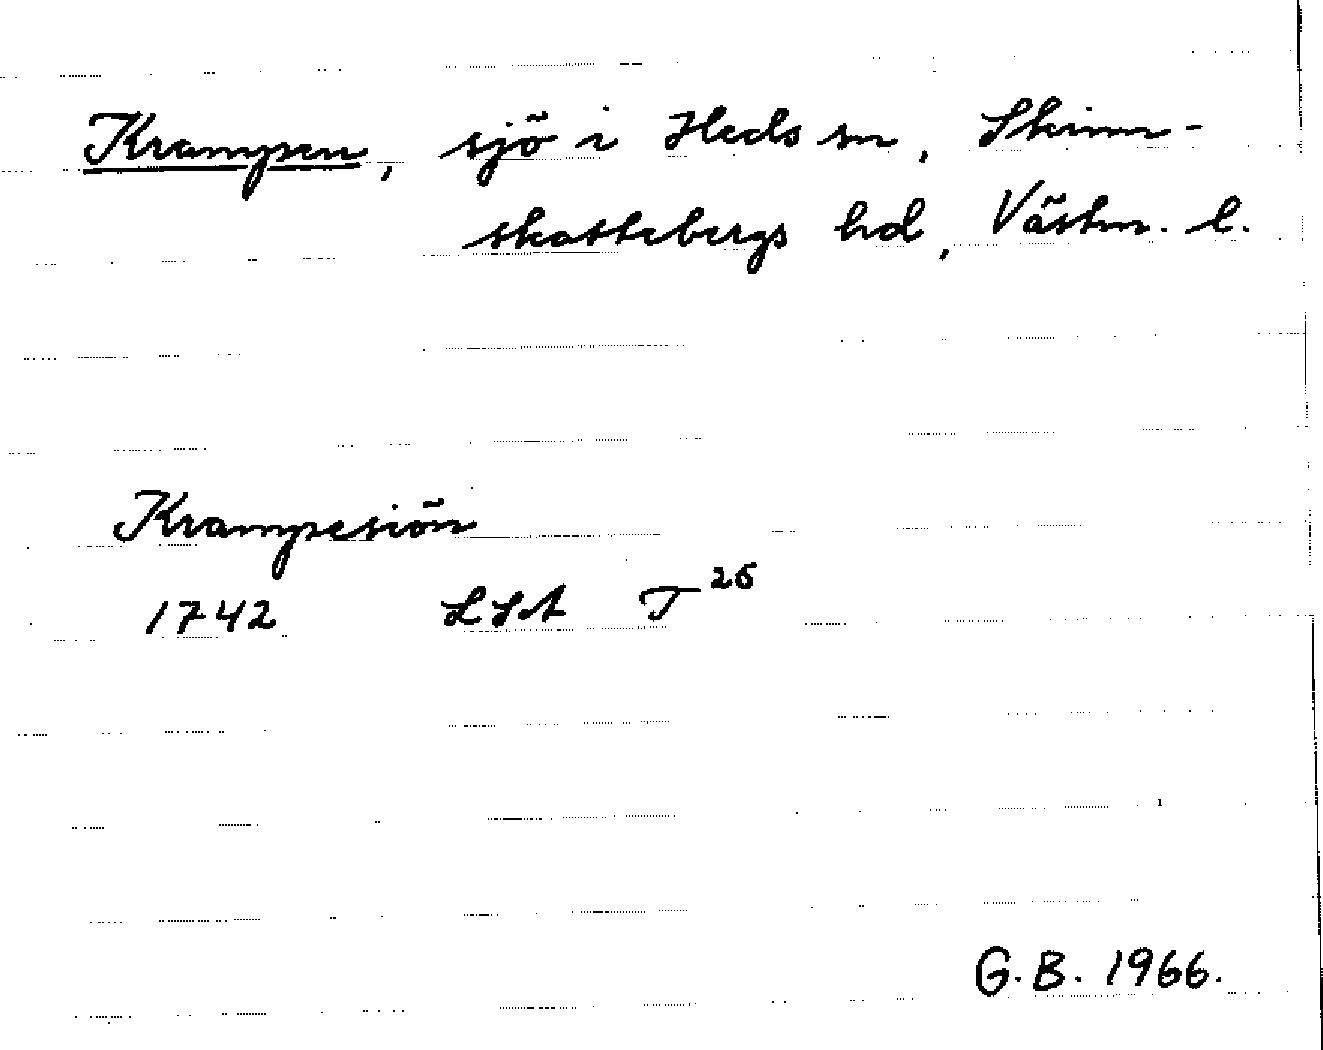 Krampen, sjö i Heds sn, Skinn-
skattebergs hd, Västm. l.
Krampesiön
1742 LSA T 26
G.B. 1966.